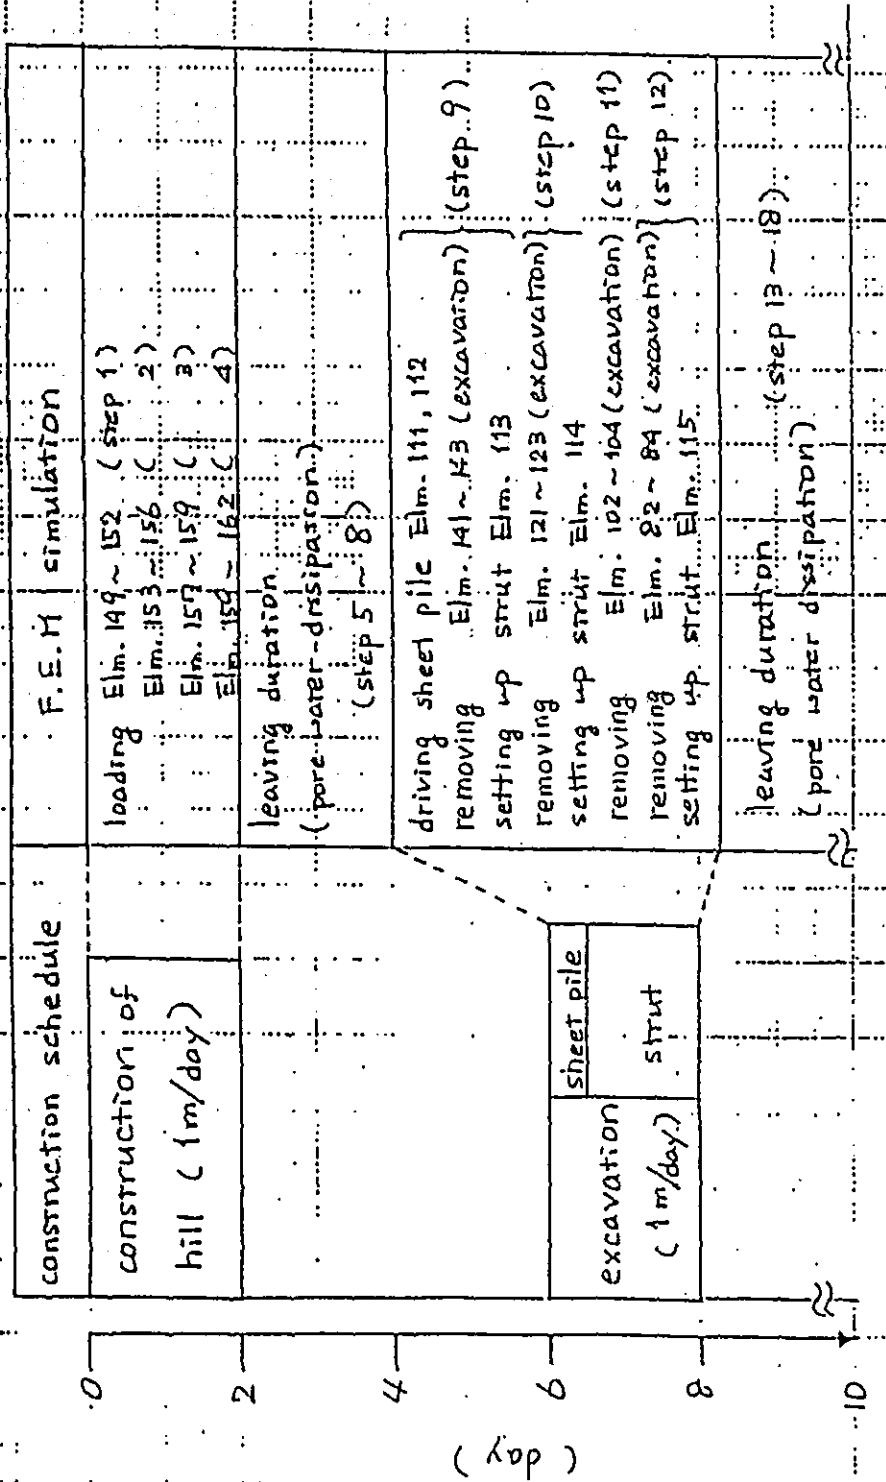 construction schedule
F.E.M simulation
0
2
4
6
8
10
(day)
construction of
hill (1m/day)
excavation
(1m/day)
sheet pile
strut
loading Elm. 149~152 (step 1)
Elm. 153~156 ( 2)
Elm. 157~159 ( 3)
Elm. 159~162 ( 4)
leaving duration
(pore water dissipation)
(step 5~8)
driving sheet pile Elm. 111, 112
removing Elm. 141~143 (excavation) (step 9)
setting up strut Elm. 113
removing Elm. 121~123 (excavation) (step 10)
setting up strut Elm. 114
removing Elm. 102~104 (excavation) (step 11)
removing Elm. 82~84 (excavation) (step 12)
setting up strut Elm. 115
leaving duration
(step 13~18)
(pore water dissipation)